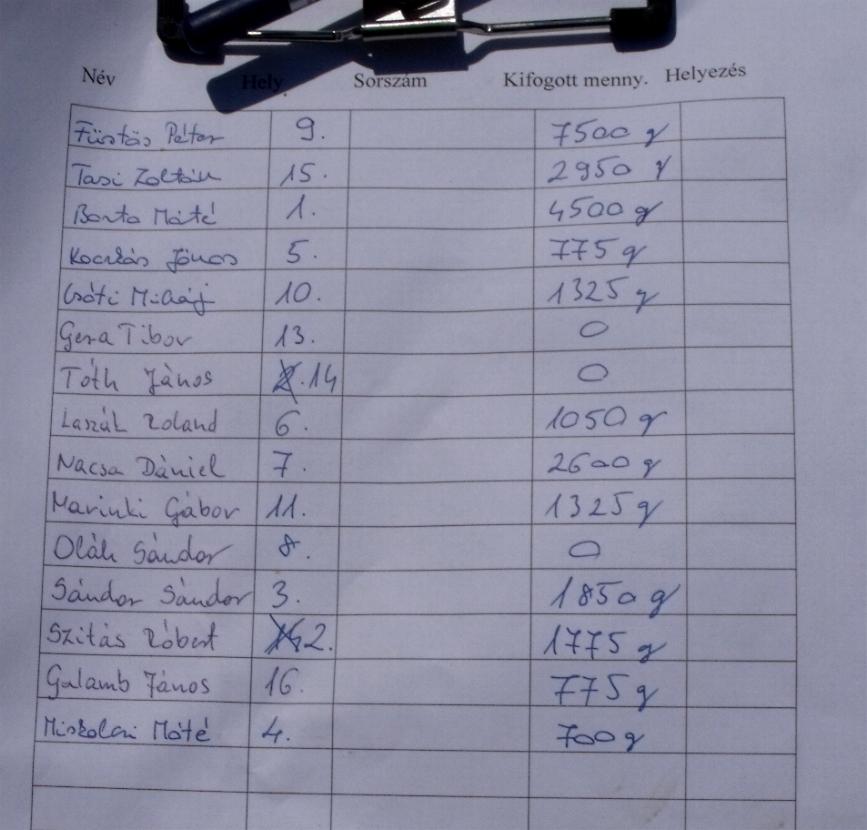 Név Hely. Sorszám Kifogott menny. Helyezés
Füstös Péter 9. 7500 g
Tasi Zoltán 15. 2950 g
Barta Máté 1. 4500 g
János 5. 775 g
Csóti Mihály 10. 1325 g
Gera Tibor 13. 0
Tóth János 14 0
László Roland 6. 1050 g
Nacsa Dániel 7. 2600 g
Marinki Gábor 11. 1325 g
Oláh Sándor 8. 0
Sándor Sándor 3. 1850 g
Szitás Róbert 2. 1775 g
Galamb János 16. 775 g
Miskolci Máté 4. 700 g